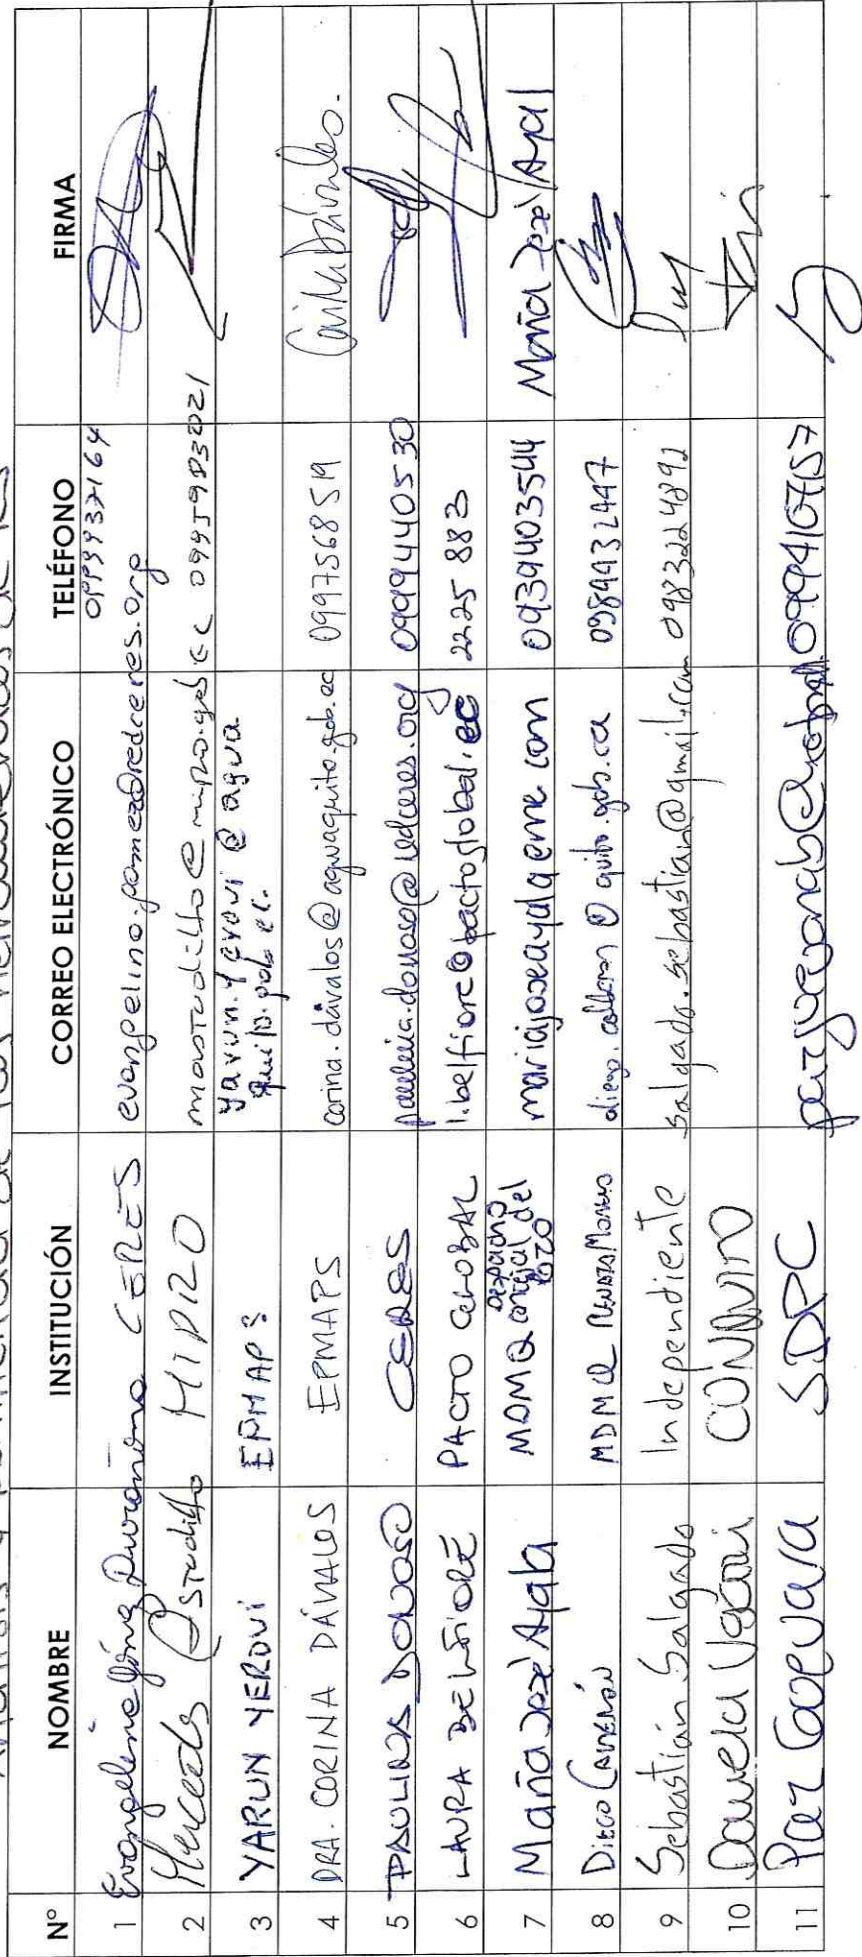 N° NOMBRE INSTITUCIÓN CORREO ELECTRÓNICO TELÉFONO FIRMA
1 Evangelina Gómez Durañona CERES evangelina.gomez@redceres.org 0999937164
2 Mercedes Astudillo MIPRO mastudillo@mipro.gob.ec 0995983021
3 YARUN YEROVI EPMAPS yarun.yerovi@agua
quito.gob.ec.
4 DRA. CORINA DÁVALOS EPMAPS corina.dávalos@aguaquito.gob.ec 0997568519 Corina Dávalos.
5 PAULINA DONOSO CERES paulina.donoso@redceres.org 0999440530
6 LAURA BELFIORE PACTO GLOBAL l.belfiore@pactoglobal.ec 2225 883
7 María José Ayala MDMQ despacho concejal del mariajoseayala@me.com 0939403544 María José Ayal
8 DIEGO CALDERÓN MDMQ quito.gob.ec
9 Sebastián Salgado Independiente salgado.sebastian@gmail.com 0983224892
10 Daniela CONQUITO
11 Paz Guevara SDPC 0994107157